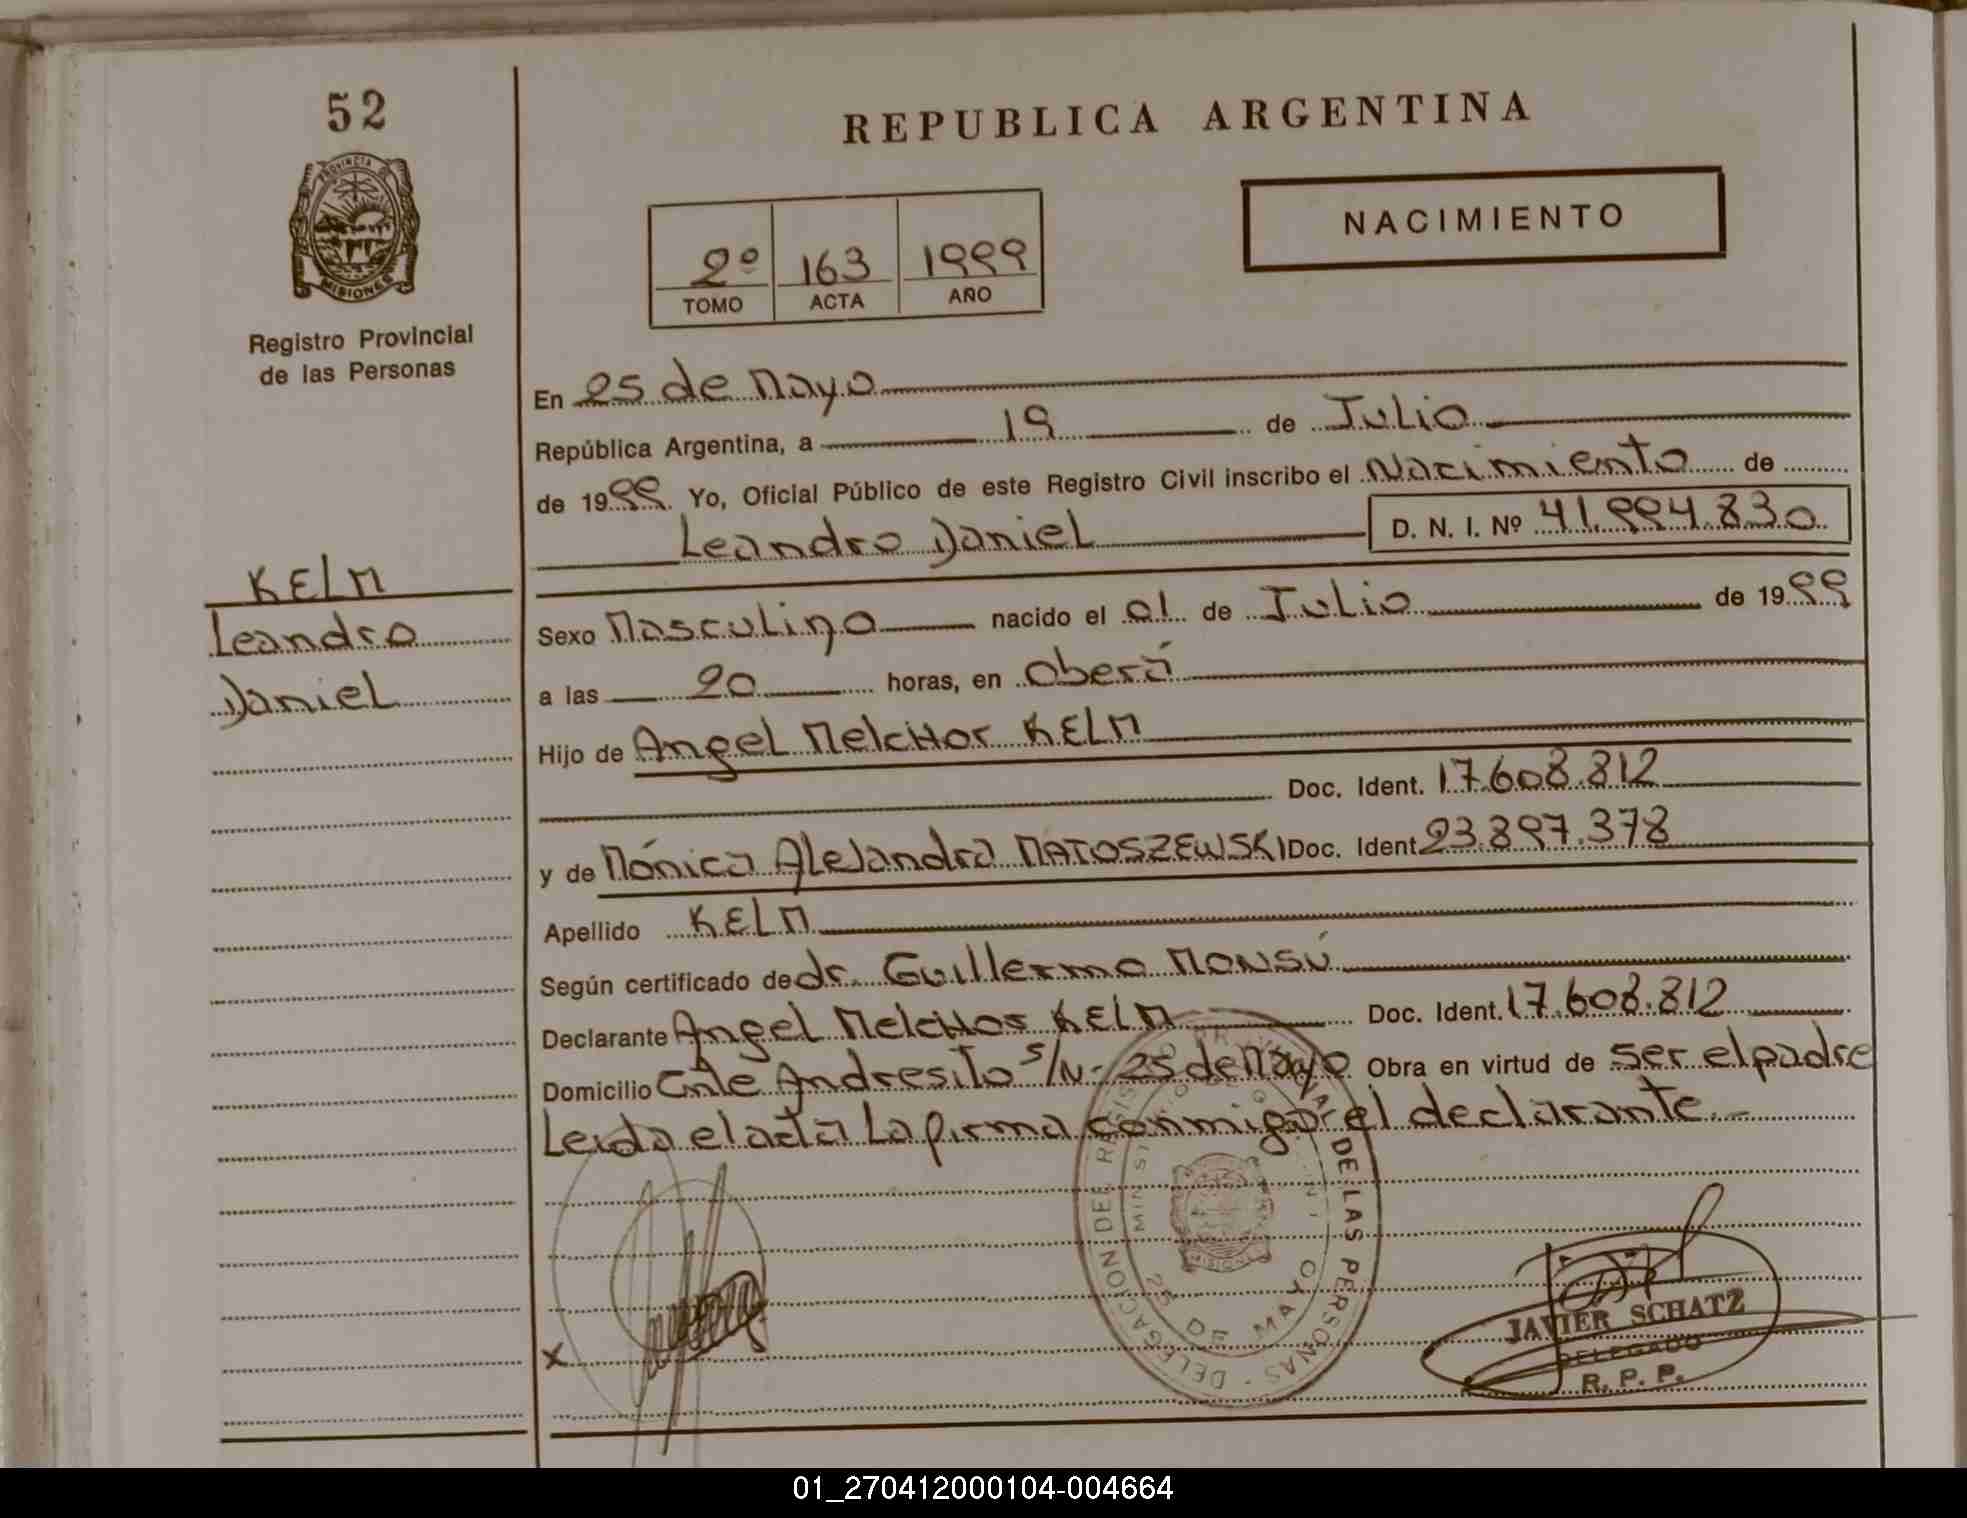 52
PROVINCIA DE
MISIONES
Registro Provincial
de las Personas
KELM
Leandro
Daniel
REPUBLICA ARGENTINA
NACIMIENTO
2º 163 1999
TOMO ACTA AÑO
En 25 de Mayo
República Argentina, a 19 de Julio
de 1999 Yo, Oficial Público de este Registro Civil inscribo el Nacimiento de
Leandro Daniel D. N. I. Nº 41.994.830
Sexo Masculino nacido el 01 de Julio de 1999
a las 20 horas, en Oberá
Hijo de Angel Melchor KELM
Doc. Ident. 17.608.812
y de Mónica Alejandra MATOSZEWSKI Doc. Ident. 23.897.378
Apellido KELM
Según certificado de dr. Guillermo MONSÚ
Declarante Angel Melchor KELM Doc. Ident. 17.608.812
Domicilio Calle Andresito s/N - 25 de Mayo Obra en virtud de ser el padre
Leida el acta La firma conmigo el declarante.-
DELEGACION DEL REGISTRO PROVINCIAL DE LAS PERSONAS
25 DE MAYO
MISIONES
X
JAVIER SCHATZ
DELEGADO
R. P. P.
01_270412000104-004664